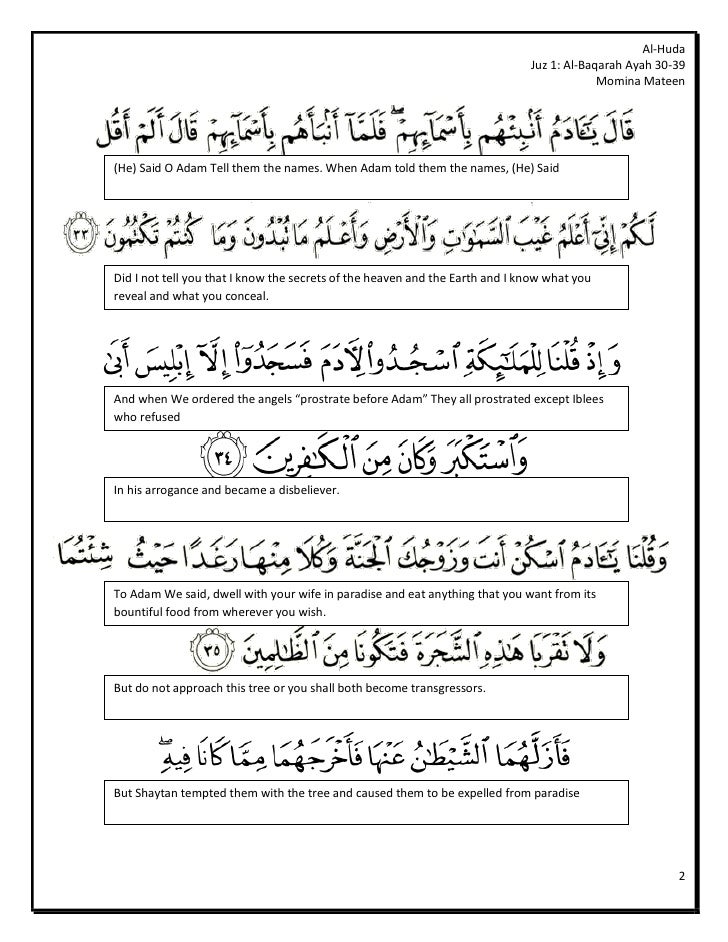 Al-Huda
Juz 1: Al-Baqarah Ayah 30-39
Momina Mateen
قَالَ يَـٰٓـَٔادَمُ أَنۢبِئْهُم بِأَسْمَآئِهِمْ ۖ فَلَمَّآ أَنۢبَأَهُم بِأَسْمَآئِهِمْ قَالَ أَلَمْ أَقُل
(He) Said O Adam Tell them the names. When Adam told them the names, (He) Said
لَّكُمْ إِنِّىٓ أَعْلَمُ غَيْبَ ٱلسَّمَـٰوَٰتِ وَٱلْأَرْضِ وَأَعْلَمُ مَا تُبْدُونَ وَمَا كُنتُمْ تَكْتُمُونَ ٣٣
Did I not tell you that I know the secrets of the heaven and the Earth and I know what you
reveal and what you conceal.
وَإِذْ قُلْنَا لِلْمَلَـٰٓئِكَةِ ٱسْجُدُوا۟ لِـَٔادَمَ فَسَجَدُوٓا۟ إِلَّآ إِبْلِيسَ أَبَىٰ
And when We ordered the angels “prostrate before Adam” They all prostrated except Iblees
who refused
وَٱسْتَكْبَرَ وَكَانَ مِنَ ٱلْكَـٰفِرِينَ ٣٤
In his arrogance and became a disbeliever.
وَقُلْنَا يَـٰٓـَٔادَمُ ٱسْكُنْ أَنتَ وَزَوْجُكَ ٱلْجَنَّةَ وَكُلَا مِنْهَا رَغَدًا حَيْثُ شِئْتُمَا
To Adam We said, dwell with your wife in paradise and eat anything that you want from its
bountiful food from wherever you wish.
وَلَا تَقْرَبَا هَـٰذِهِ ٱلشَّجَرَةَ فَتَكُونَا مِنَ ٱلظَّـٰلِمِينَ ٣٥
But do not approach this tree or you shall both become transgressors.
فَأَزَلَّهُمَا ٱلشَّيْطَـٰنُ عَنْهَا فَأَخْرَجَهُمَا مِمَّا كَانَا فِيهِ ۖ
But Shaytan tempted them with the tree and caused them to be expelled from paradise
2